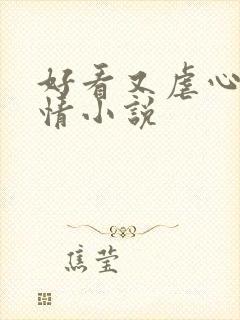 好看又虐心
情小说
焦莹